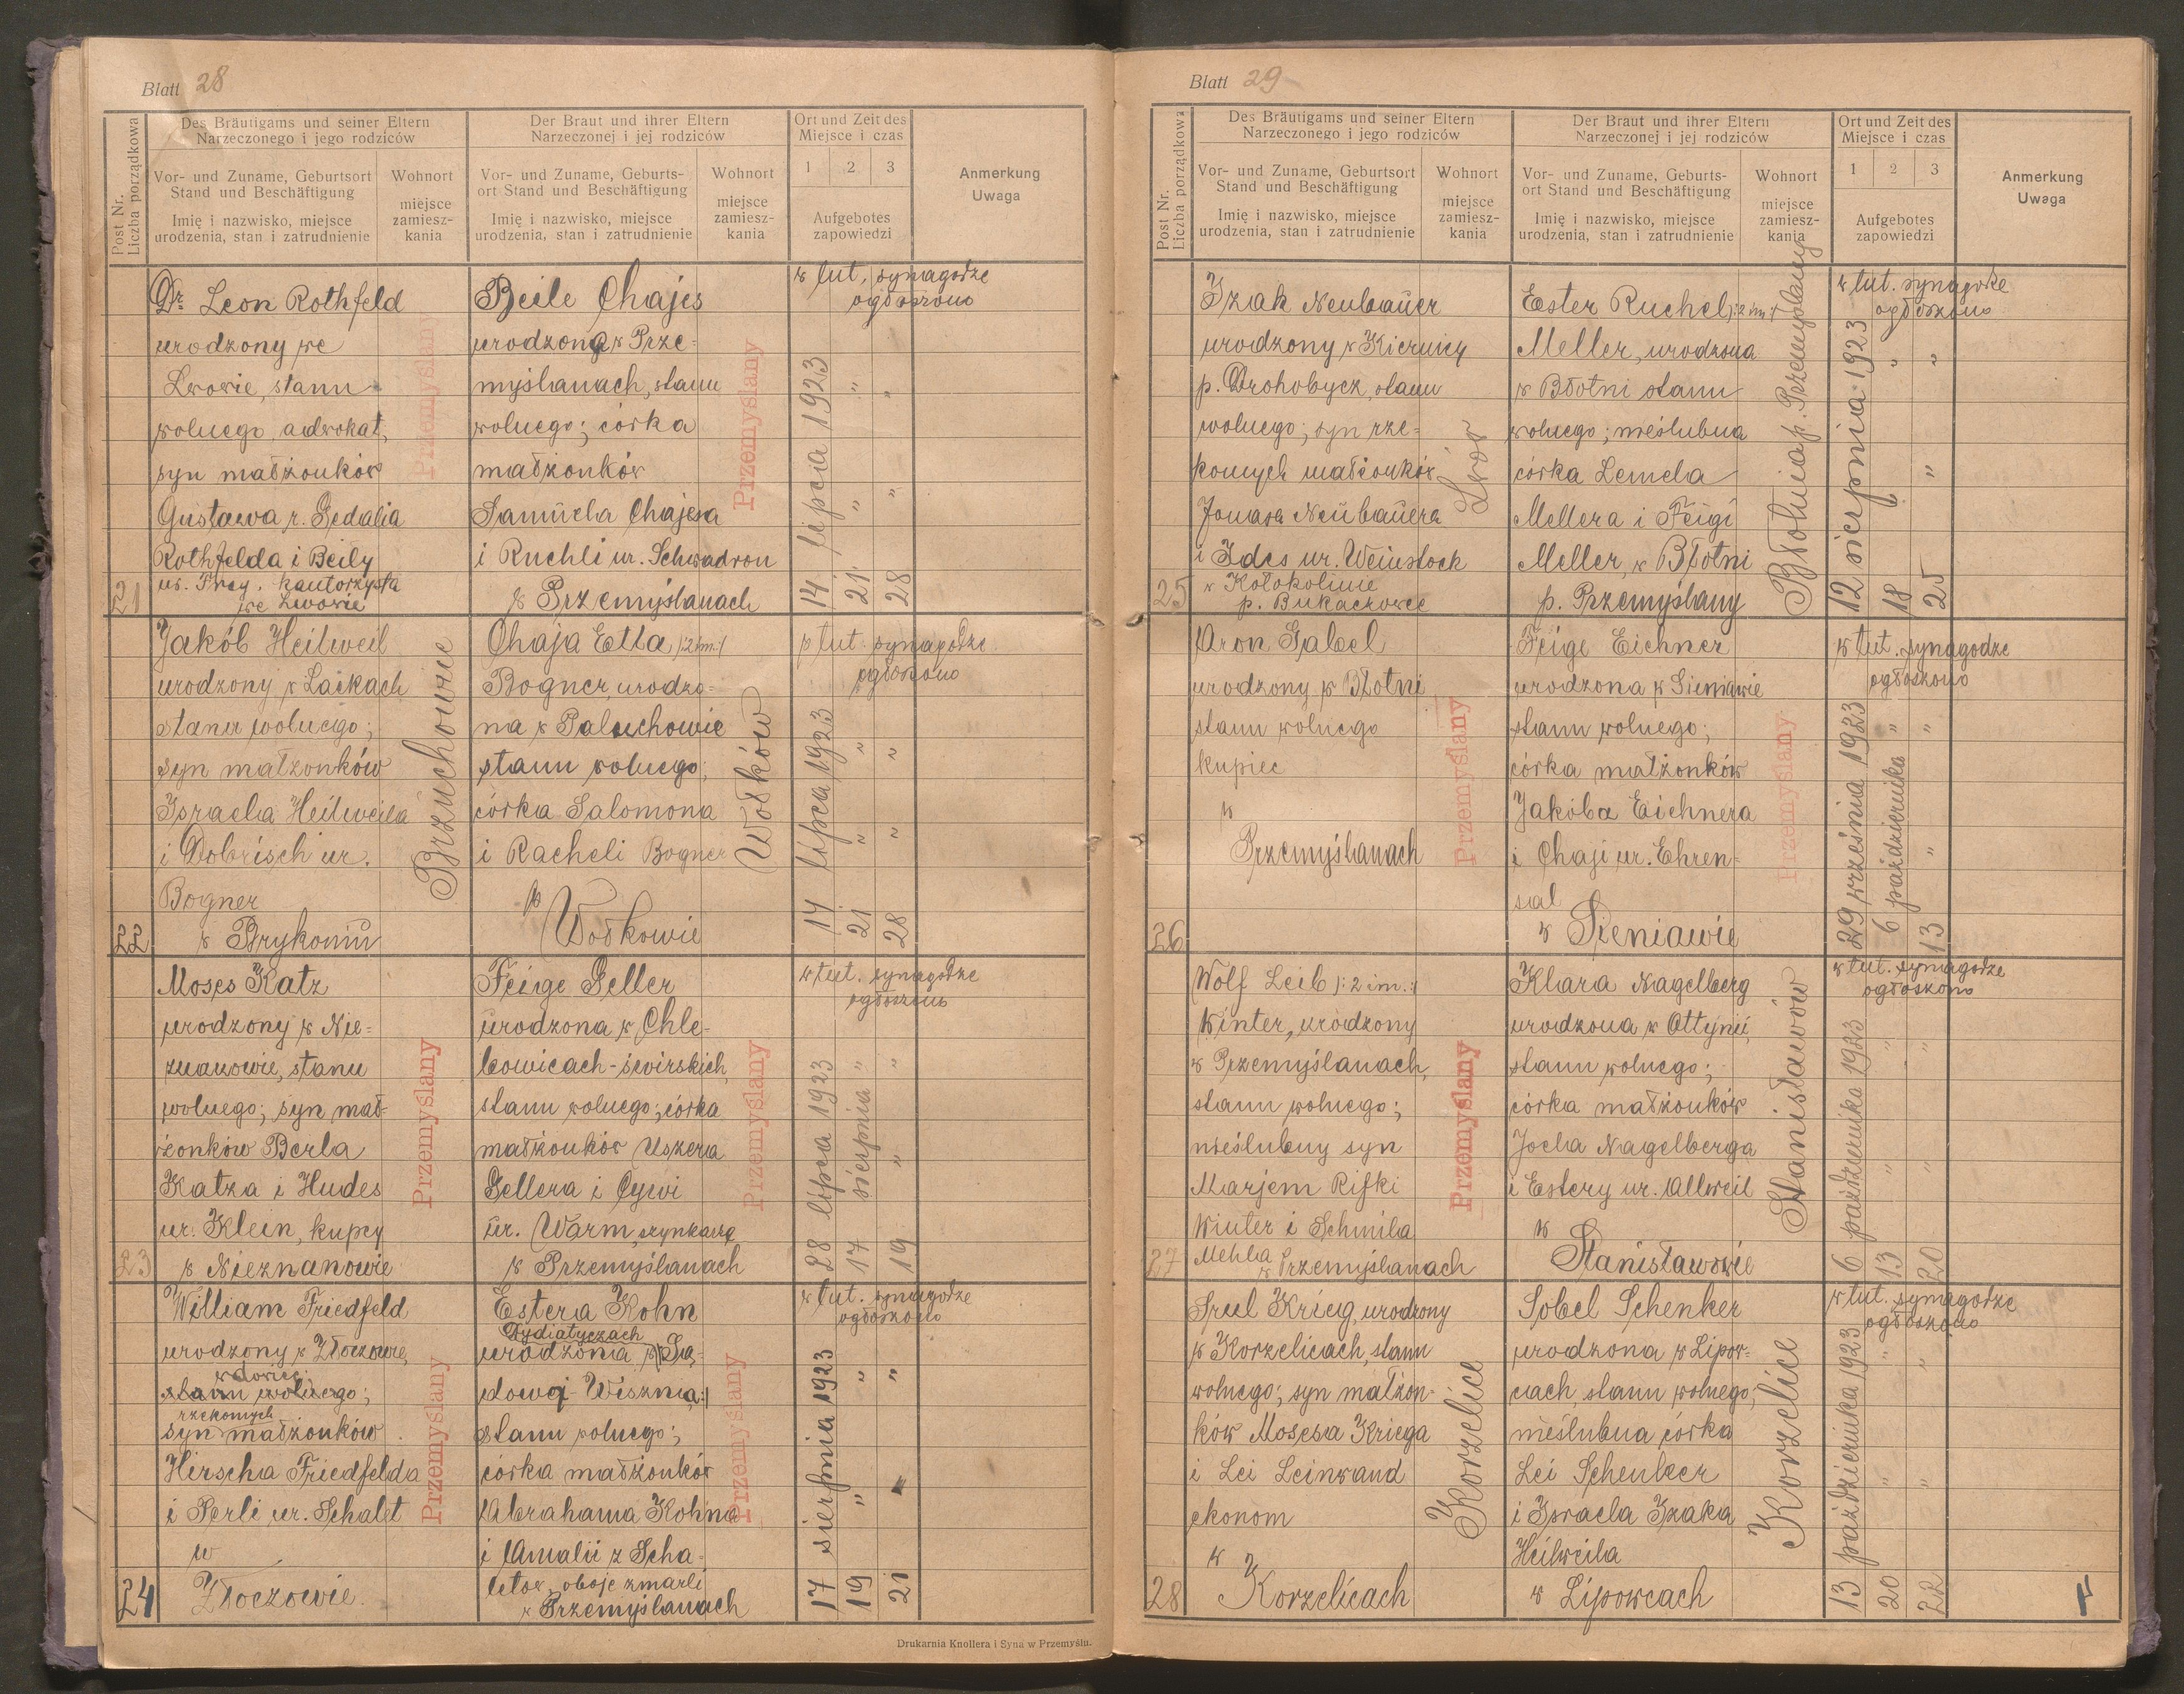 Blatt 28
Post Nr.
Liczba porządkowa
Des Bräutigams und seiner Eltern
Narzeczonego i jego rodziców
Vor- und Zuname, Geburtsort
Stand und Beschäftigung
Imię i nazwisko, miejsce
urodzenia, stan i zatrudnienie
Wohnort
miejsce
zamiesz-
kania
Der Braut und ihrer Eltern
Narzeczonej i jej rodziców
Vor- und Zuname, Geburts-
ort Stand und Beschäftigung
Imię i nazwisko, miejsce
urodzenia, stan i zatrudnienie
Wohnort
miejsce
zamiesz-
kania
Ort und Zeit des
Miejsce i czas
1 2 3
Aufgebotes
zapowiedzi
Anmerkung
Uwaga
21
Dr. Leon Rothfeld
urodzony we
Lwowie, stanu
wolnego, adwokat,
syn małżonków
Gustawa r. Gedalia
Rothfelda i Beily
ur. Frey, kantorzysta
we Lwowie
Przemyślany
Beile Chajes
urodzona w Prze-
myślanach, stanu
wolnego; córka
małżonków
Samuela Chajesa
i Ruchli ur. Schwadron
w Przemyślanach
Przemyślany
w tut. synagodze
ogłoszono
14 lipcia 1923
21 " "
28 " "
22
Jakób Heilweil
urodzony w Łaikach
stanu wolnego;
syn małżonków
Israela Heilweila
i Dobrisch ur.
Bogner
w Brykoniu
Brzuchowie
Chaja Etta /:2 im:/
Bogner urodzo-
na w Paluchowie
stanu wolnego;
córka Salomona
i Racheli Bogner
w
Wołkowie
Wołków
w tut. synagodze
ogłoszono
14 lipca 1923
21 " "
28 " "
23
Moses Katz
urodzony w Nie-
znanowie, stanu
wolnego; syn mał-
żonków Berla
Katza i Hudes
ur. Klein, kupcy
w Nieznanowie
Przemyślany
Feige Geller
urodzona w Chle-
bowicach-świrskich,
stanu wolnego; córka
małżonków Uszera
Gellera i Cywi
ur. Warm, szynkarza
w Przemyślanach
Przemyślany
w tut. synagodze
ogłoszono
28 lipca 1923
17 sierpnia "
19 " "
24
William Friedfeld
urodzony w Złoczowie,
wdowiec;
stanu wolnego;
rzekomych
syn małżonków
Hirscha Friedfelda
i Perli ur. Schalet
w
Złoczowie.
Przemyślany
Estera Kohn
Dydiatyczach
urodzona w Są-
dowej-Wiszni:/
stanu wolnego;
córka małżonków
Abrahama Kohna
i Amalii z Scha-
letów, oboje zmarli
w Przemyślanach
Przemyślany
w tut. synagodze
ogłoszono
17 sierpnia 1923
19 " "
21 " "
Drukarnia Knollera i Syna w Przemyślu.
Blatt 29
Post Nr.
Liczba porządkowa
Des Bräutigams und seiner Eltern
Narzeczonego i jego rodziców
Vor- und Zuname, Geburtsort
Stand und Beschäftigung
Imię i nazwisko, miejsce
urodzenia, stan i zatrudnienie
Wohnort
miejsce
zamiesz-
kania
Der Braut und ihrer Eltern
Narzeczonej i jej rodziców
Vor- und Zuname, Geburts-
ort Stand und Beschäftigung
Imię i nazwisko, miejsce
urodzenia, stan i zatrudnienie
Wohnort
miejsce
zamiesz-
kania
Ort und Zeit des
Miejsce i czas
1 2 3
Aufgebotes
zapowiedzi
Anmerkung
Uwaga
25
Izak Neubauer
urodzony w Kiernicy
p. Drohobycz, stanu
wolnego; syn rze-
komych małżonków
Jonasa Neubauera
i Ides ur. Weinstock
w Kołokolinie
p. Bukaczowce
Lwów
Ester Ruchel /:2 im:/
Meller, urodzona
w Błotni stanu
wolnego; nieślubna
córka Lemela
Mellera i Feigi
Meller, w Błotni
p. Przemyślany
Błotnia p. Przemyślany
w tut. synagodze
ogłoszono
12 sierpnia 1923
18 " "
25 " "
26
Aron Gabel
urodzony w Błotni
stanu wolnego
kupiec
w
Przemyślanach
Przemyślany
Feige Eichner
urodzona w Sieniawie
stanu wolnego;
córka małżonków
Jakóba Eichnera
i Chaji ur. Ehren-
sal
w Sieniawie
Przemyślany
w tut. synagodze
ogłoszono
29 września 1923
6 października "
13 " "
27
Wolf Leib /:2 im.:/
Winter, urodzony
w Przemyślanach,
stanu wolnego;
nieślubny syn
Marjem Rifki
Winter i Schmila
Mehla
w Przemyślanach
Przemyślany
Klara Nagelberg
urodzona w Ottynii,
stanu wolnego;
córka małżonków
Joela Nagelberga
i Estery ur. Allweil
w
Stanisławowie
Stanisławów
w tut. synagodze
ogłoszono
6 października 1923
13 " "
20 " "
28
Srul Krieg, urodzony
w Korzelicach, stanu
wolnego; syn małżon-
ków Mosesa Kriega
i Lei Leinwand
ekonom
w
Korzelicach
Korzelice
Sobel Schenker
urodzona w Lipow-
cach, stanu wolnego;
nieślubna córka
Lei Schenker
i Israela Izaka
Heilweila
w Lipowcach
Korzelice
w tut. synagodze
ogłoszono
13 października 1923
20 " "
22 " "